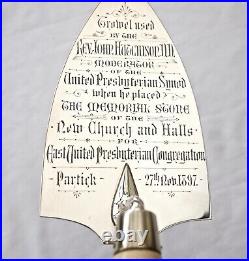 Trowel used
BY THE
Rev. John Hutchison, D.D.
MODERATOR
OF THE
United Presbyterian Synod
when he placed
THE MEMORIAL STONE
OF THE
New Church and Halls
FOR
East United Presbyterian Congregation
Partick 27th Nov. 1897.